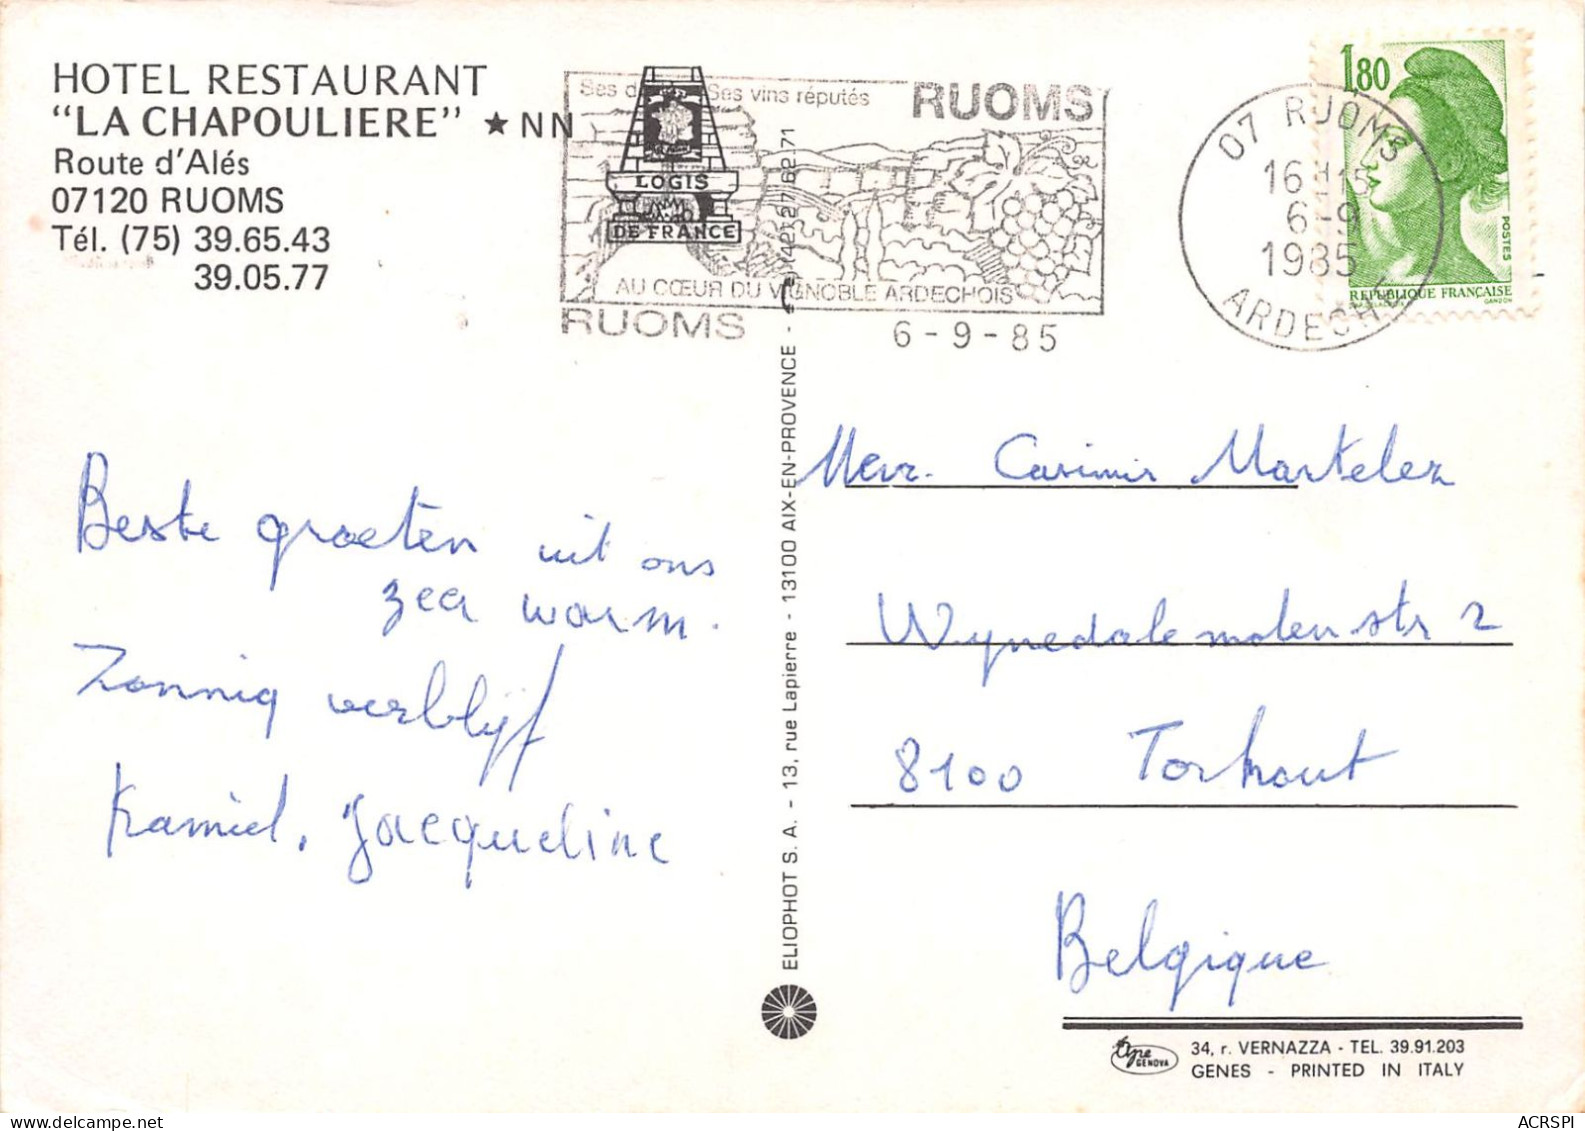 HOTEL RESTAURANT
"LA CHAPOULIERE" ★ NN
Route d'Alés
07120 RUOMS
Tél. (75) 39.65.43
39.05.77
LOGIS
DE FRANCE
Ses vins réputés
RUOMS
AU CŒUR DU VIGNOBLE ARDECHOIS
RUOMS
6-9-85
07 RUOMS
16 H15
6-9
1985
ARDECHE
1,80
POSTES
REPUBLIQUE FRANÇAISE
GANDON
Beste groeten uit ons
zeer warm.
Zonnig verblijf
Kamiel, Jacqueline
ELIOPHOT S. A. - 13, rue Lapierre - 13100 AIX-EN-PROVENCE - (42) 27 62 71
Mevr. Casimir Martelez
Wynedalemolenstr 2
8100 Torhout
Belgique
type
GENOVA
34, r. VERNAZZA - TEL. 39.91.203
GENES - PRINTED IN ITALY
ACRSPI